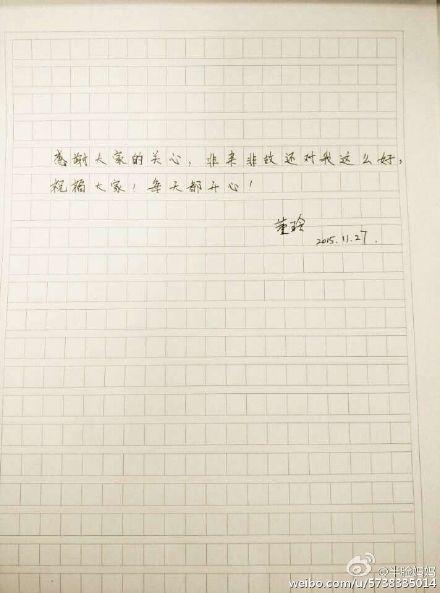 感谢大家的关心，非亲非故还对我这么好，
祝福大家！每天都开心！
2015.11.27.
weibo.com/u/5738335014